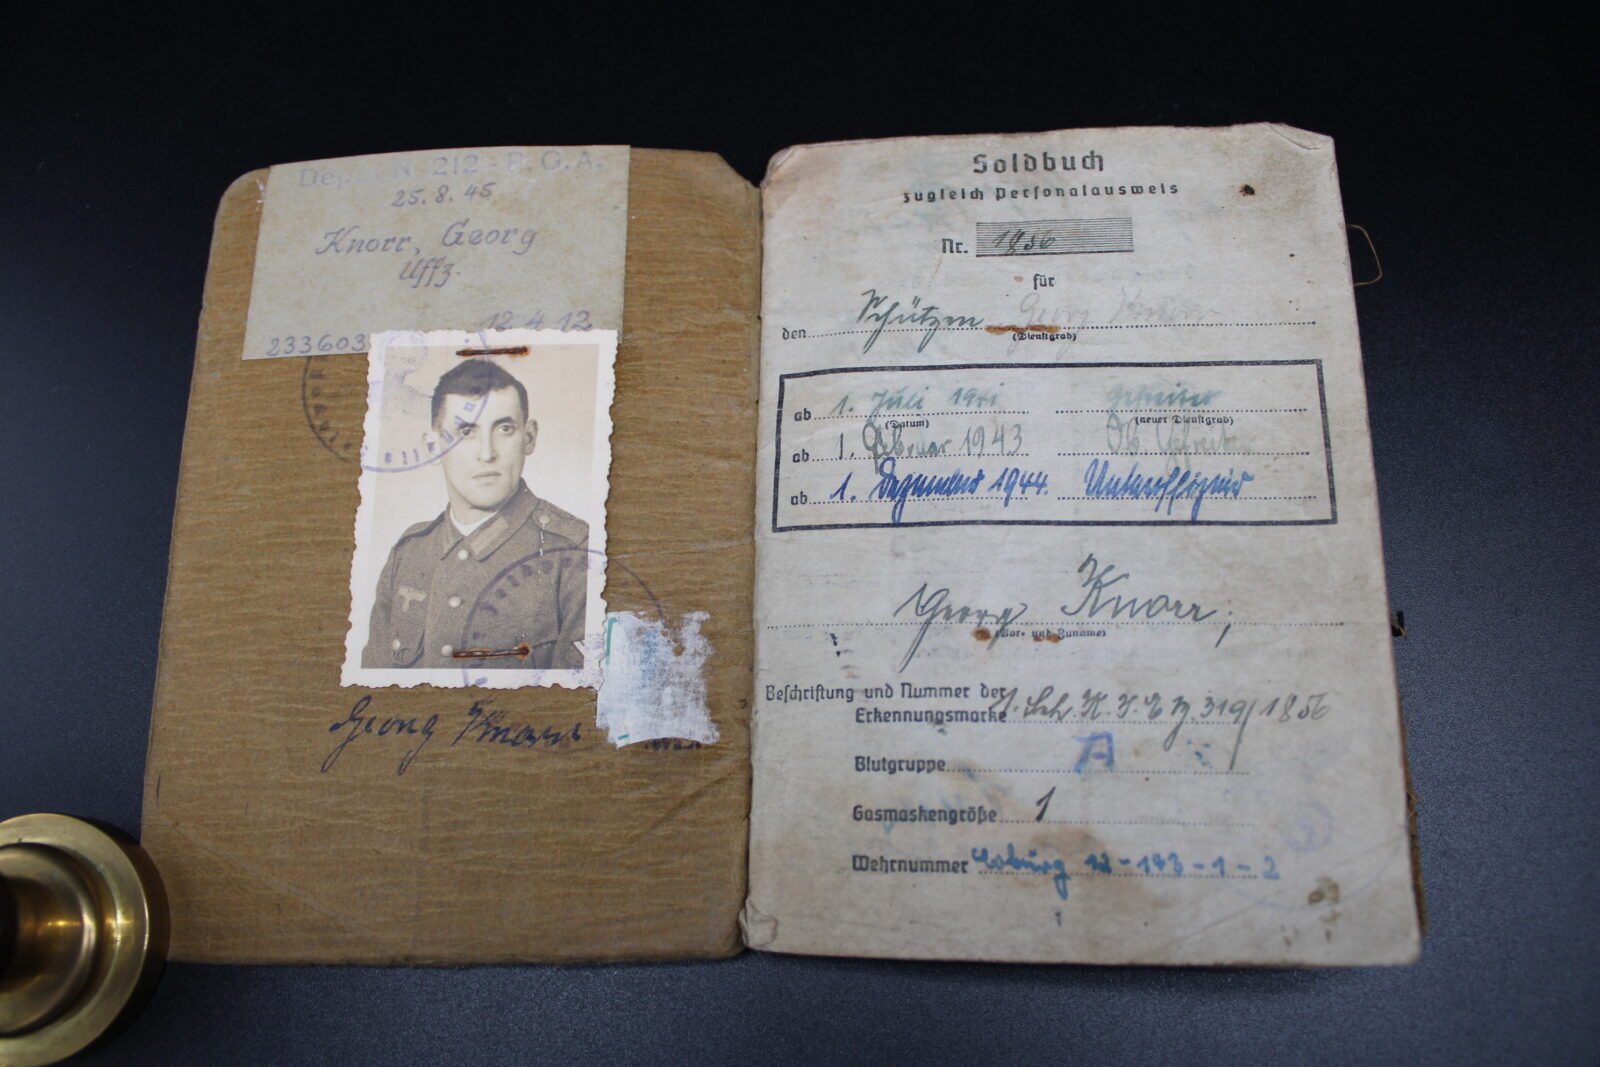 Depot N. 212 - P.O.A.
25.8.45
Knorr, Georg
Uffz.
12 4 12
233603
Georg Knorr
Soldbuch
zugleich Personalausweis
Nr. 1856
für
den Schützen Georg Knorr
(Dienstgrad)
ab 1. Juli 1941 Gefreiter
(Datum) (neuer Dienstgrad)
ab 1. Februar 1943 Ob. Gefreiter
ab 1. Dezember 1944. Unteroffizier
Georg Knorr,
(Vor- und Zuname)
Beschriftung und Nummer der
Erkennungsmarke 1. Sch. K. I. E. 319/1856
Blutgruppe A
Gasmaskengröße 1
Wehrnummer Coburg 12-143-1-2
1